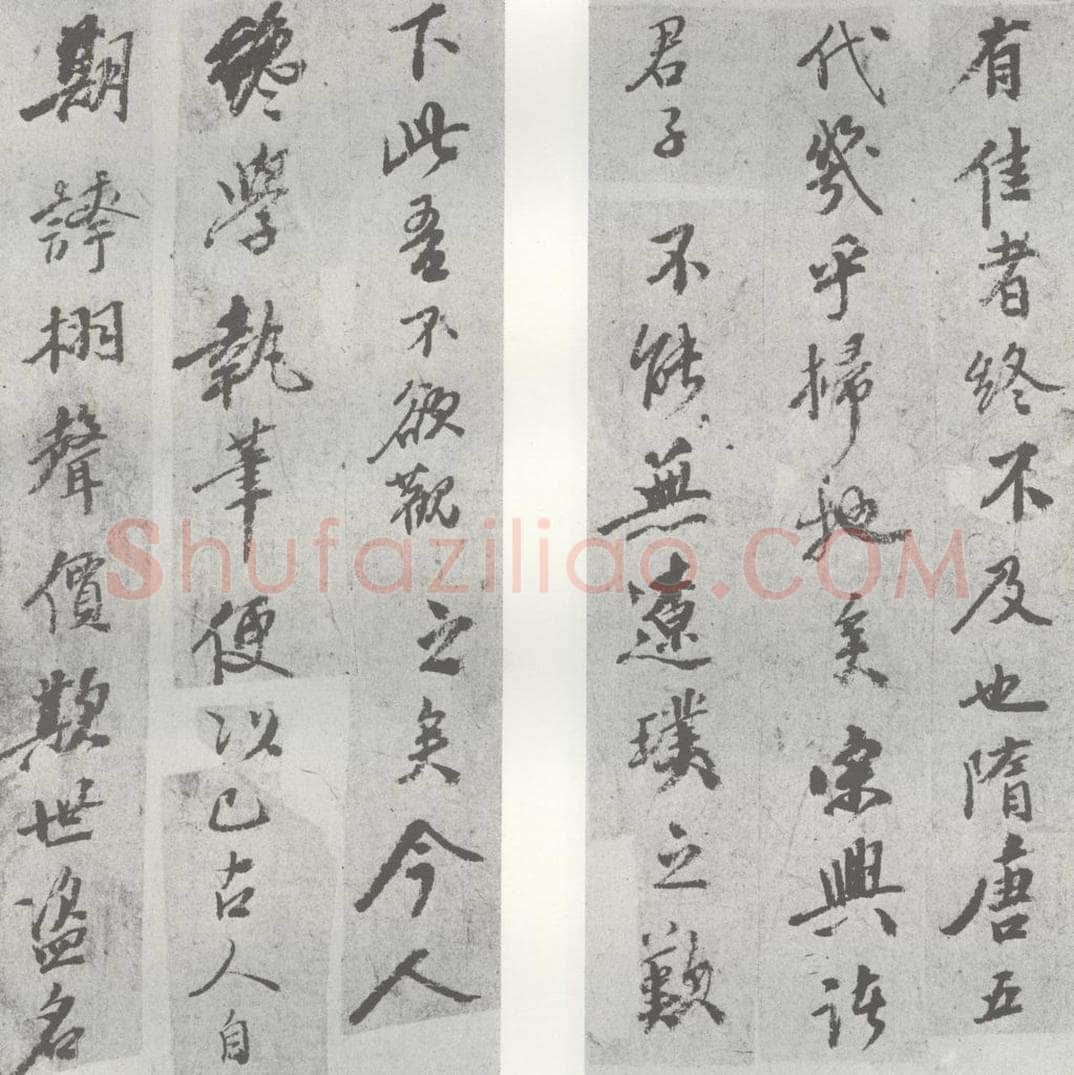 有佳者終不及也隋唐五
代幾乎掃地矣宋興諸
君子不能無遼璞之歎
下此吾不欲觀之矣今人
纔學執筆便以已古人自
期誇栩聲價欺世盜名
Shufaziliao.COM